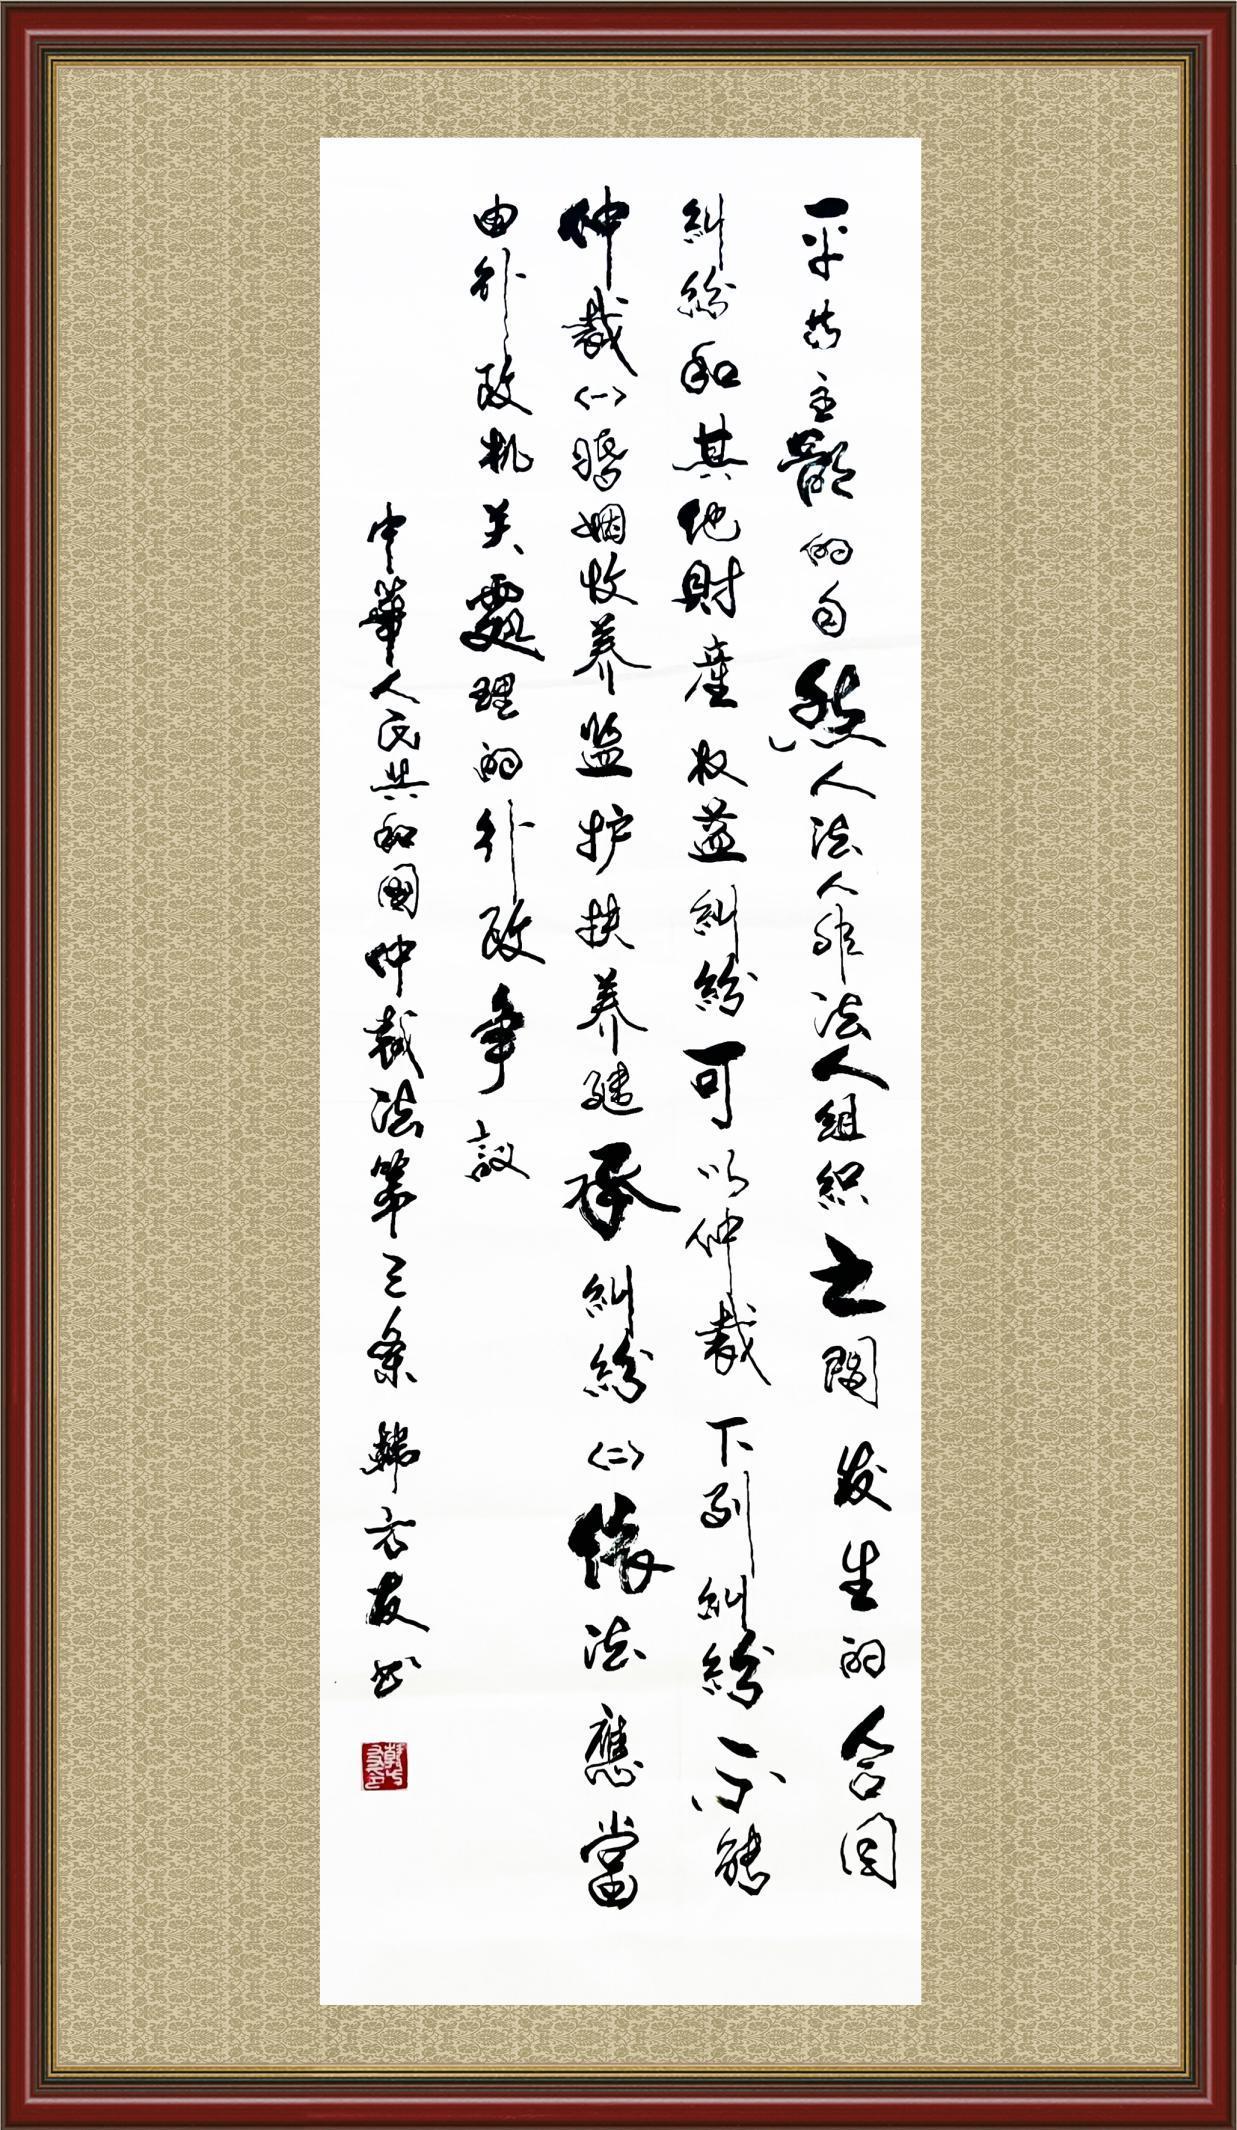 平等主體的自然人法人非法人组织之間发生的合同
糾紛和其他財産权益糾紛可以仲裁下列糾紛不能
仲裁〈一〉婚姻收养监护扶养继承糾紛〈二〉依法應當
由行政机关處理的行政争議
中華人民共和國仲裁法第三条 韩方友书